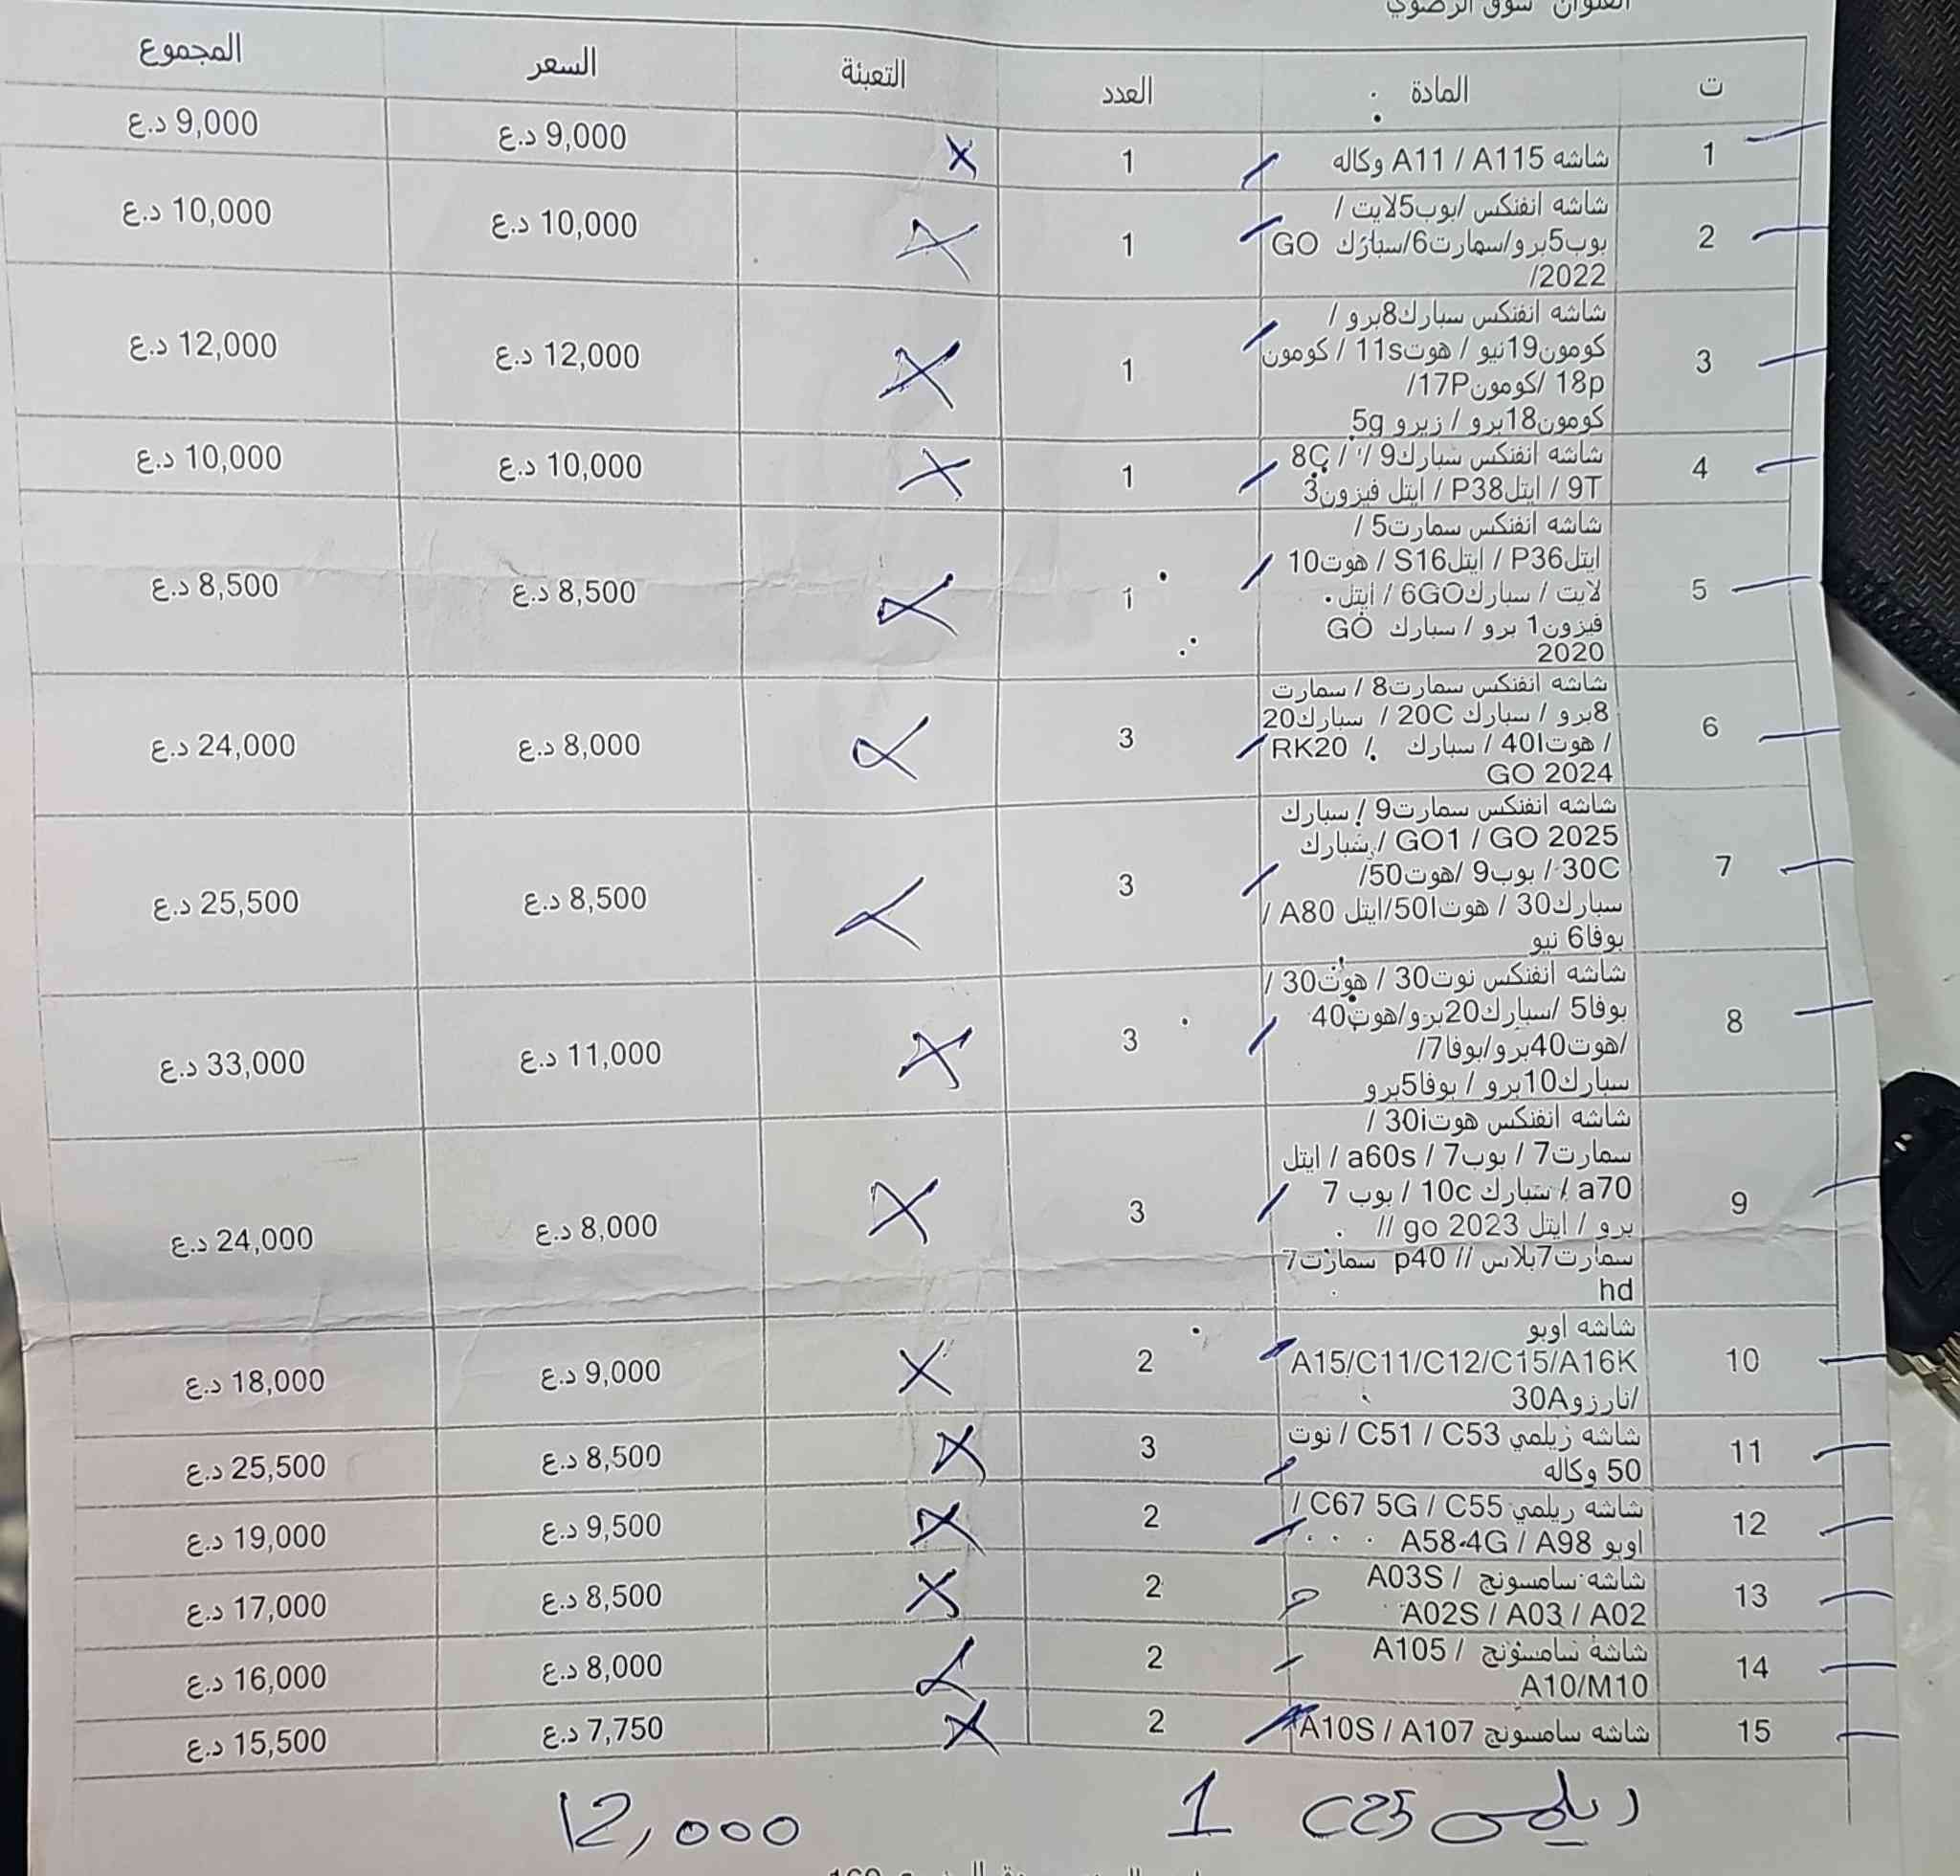 العنوان سوق الرضوي
ت المادة العدد التعبئة السعر المجموع
1 شاشه A11 / A115 وكاله 1 9,000 د.ع 9,000 د.ع
2 شاشه انفنكس /بوب5لايت /
بوب5برو/سمارت6/سبارك GO
2022/
1 10,000 د.ع 10,000 د.ع
3 شاشه انفنكس سبارك8برو /
كومون19نيو / هوت11s / كومون
18p /كومون17P/
كومون18برو / زيرو 5g
1 12,000 د.ع 12,000 د.ع
4 شاشه انفنكس سبارك9 / / 8C
9T / ايتلP38 / ايتل فيزون3
1 10,000 د.ع 10,000 د.ع
5 شاشه انفنكس سمارت5 /
ايتلP36 / ايتلS16 / هوت10
لايت / سبارك6GO / ايتل
فيزون1 برو / سبارك GO
2020
1 8,500 د.ع 8,500 د.ع
6 شاشه انفنكس سمارت8 / سمارت
8برو / سبارك 20C / سبارك20
/ هوت40I / سبارك / RK20
GO 2024
3 8,000 د.ع 24,000 د.ع
7 شاشه انفنكس سمارت9 / سبارك
GO1 / GO 2025 / سبارك
30C / بوب9 /هوت50/
سبارك30 / هوت50I/ايتل A80 /
بوفا6 نيو
3 8,500 د.ع 25,500 د.ع
8 شاشه انفنكس نوت30 / هوت30 /
بوفا5 /سبارك20برو/هوت40
/هوت40برو/بوفا7/
سبارك10برو / بوفا5برو
3 11,000 د.ع 33,000 د.ع
9 شاشه انفنكس هوت30i /
سمارت7 / بوب7 / a60s / ايتل
a70 / سبارك 10c / بوب 7
برو / ايتل go 2023 //
سمارت7بلاس // p40 سمارت7
hd
3 8,000 د.ع 24,000 د.ع
10 شاشه اوبو
A15/C11/C12/C15/A16K
/نارزو30A
2 9,000 د.ع 18,000 د.ع
11 شاشه زيلمي C51 / C53 / نوت
50 وكاله
3 8,500 د.ع 25,500 د.ع
12 شاشه ريلمي C67 5G / C55 /
اوبو A58-4G / A98
2 9,500 د.ع 19,000 د.ع
13 شاشه سامسونج A03S /
A02S / A03 / A02
2 8,500 د.ع 17,000 د.ع
14 شاشة سامسونج A105 /
A10/M10
2 8,000 د.ع 16,000 د.ع
15 شاشه سامسونج A10S / A107 2 7,750 د.ع 15,500 د.ع
ريلمي C25 1 12,000